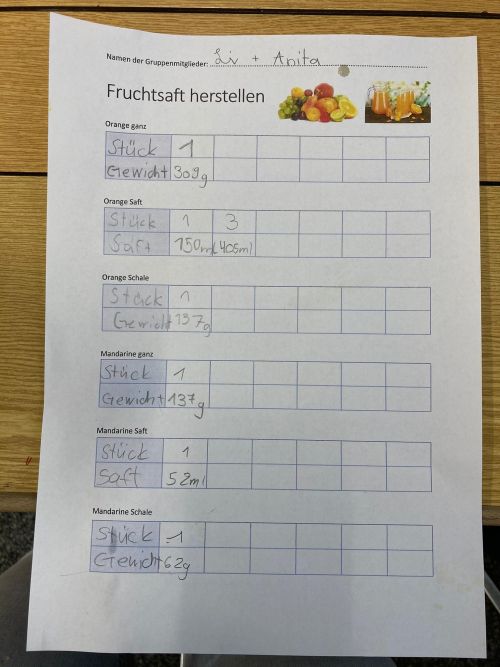 Namen der Gruppenmitglieder: Liv + Anita
Fruchtsaft herstellen
Orange ganz
Stück 1
Gewicht 309g
Orange Saft
Stück 1 3
Saft 150ml 405ml
Orange Schale
Stück 1
Gewicht 137g
Mandarine ganz
Stück 1
Gewicht 137g
Mandarine Saft
Stück 1
Saft 52ml
Mandarine Schale
Stück 1
Gewicht 62g